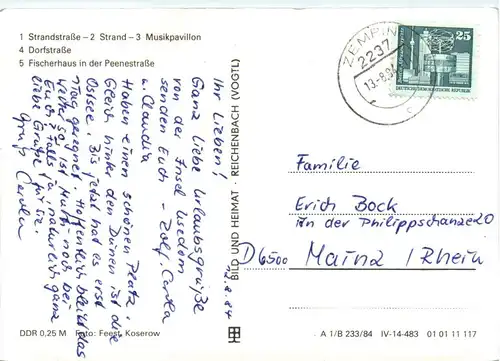 1 Strandstraße – 2 Strand – 3 Musikpavillon
4 Dorfstraße
5 Fischerhaus in der Peenestraße
ZEMPIN
2237
13-8.84
25
DEUTSCHE DEMOKRATISCHE REPUBLIK
Ihr Lieben!
Ganz liebe Urlaubsgrüße
von der Insel Usedom
senden Euch - Carola
u. Claudia
Haben einen schönen Platz.
Gleich hinter den Dünen ist die
Ostsee. Bis jetzt hat es erst
1 Tag geregnet. Hoffentlich bleibt das
Wetter so! Ist Mutti noch bei
Euch? Falls ja, natürlich ganz
liebe Grüße für sie.
Gruß Carola
BILD UND HEIMAT · REICHENBACH (VOGTL)
Familie
Erich Bock
An der Philippschanze 20
D6500 Mainz / Rhein
DDR 0,25 M Foto: Feest, Koserow
A 1/B 233/84 IV-14-483 01 01 11 117